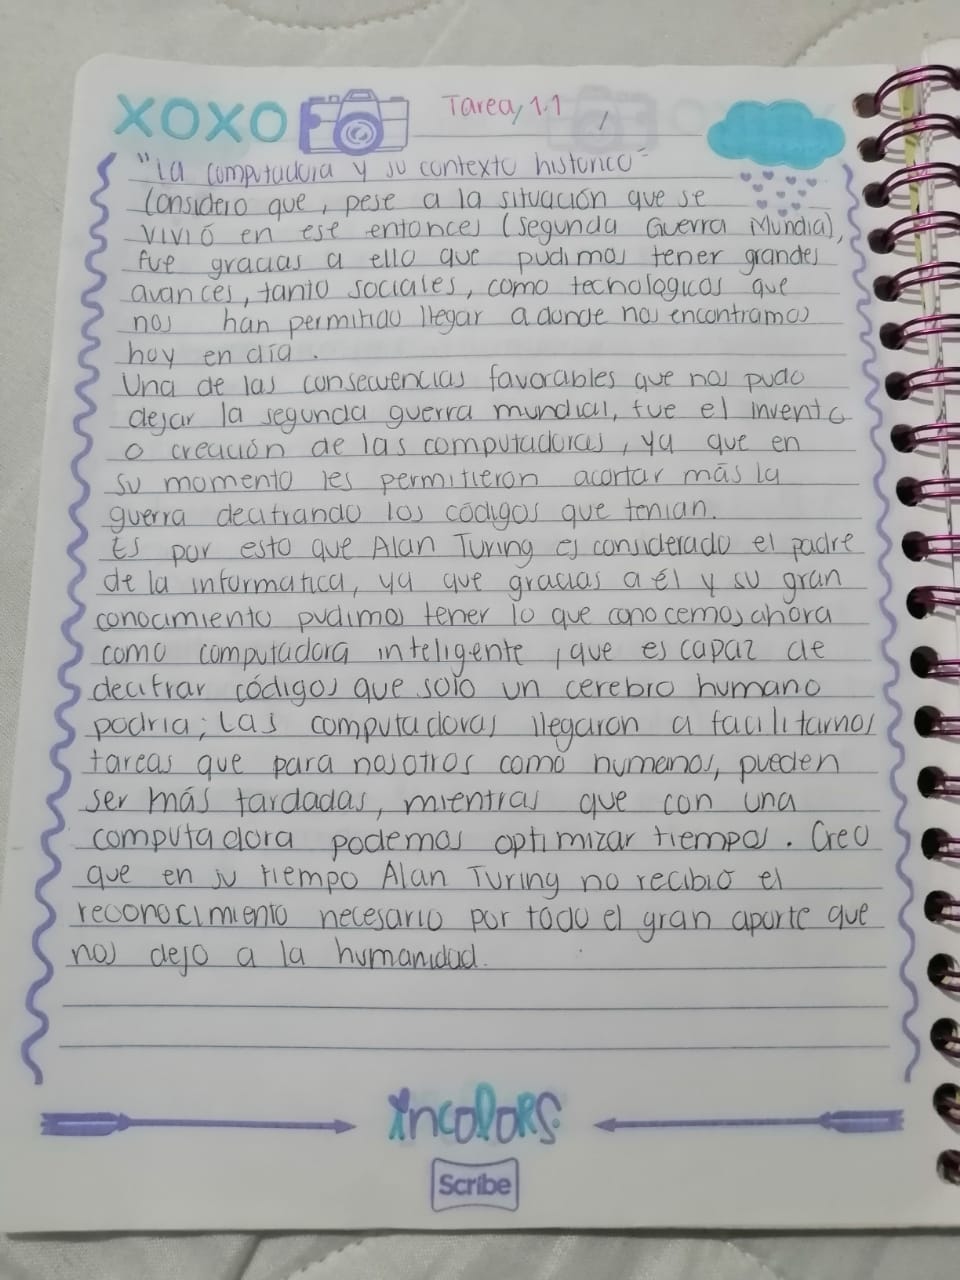 XOXO
Tarea, 1.1
"La computadora y su contexto historico"
Considero que, pese a la situación que se
vivió en ese entonces (segunda Guerra Mundial),
fue gracias a ello que pudimos tener grandes
avances, tanto sociales, como tecnologicos que
nos han permitido llegar a donde nos encontramos
hoy en día.
Una de las consecuencias favorables que nos pudo
dejar la segunda guerra mundial, fue el invento
o creación de las computadoras, ya que en
su momento les permitieron acortar más la
guerra decifrando los códigos que tenian.
Es por esto que Alan Turing es considerado el padre
de la informatica, ya que gracias a él y su gran
conocimiento pudimos tener lo que conocemos ahora
como computadora inteligente, que es capaz de
decifrar códigos que solo un cerebro humano
podria; Las computadoras llegaron a facilitarnos
tareas que para nosotros como humanos, pueden
ser más tardadas, mientras que con una
computadora podemos optimizar tiempos. Creo
que en su tiempo Alan Turing no recibió el
reconocimiento necesario por todo el gran aporte que
nos dejo a la humanidad.
incolors
Scribe